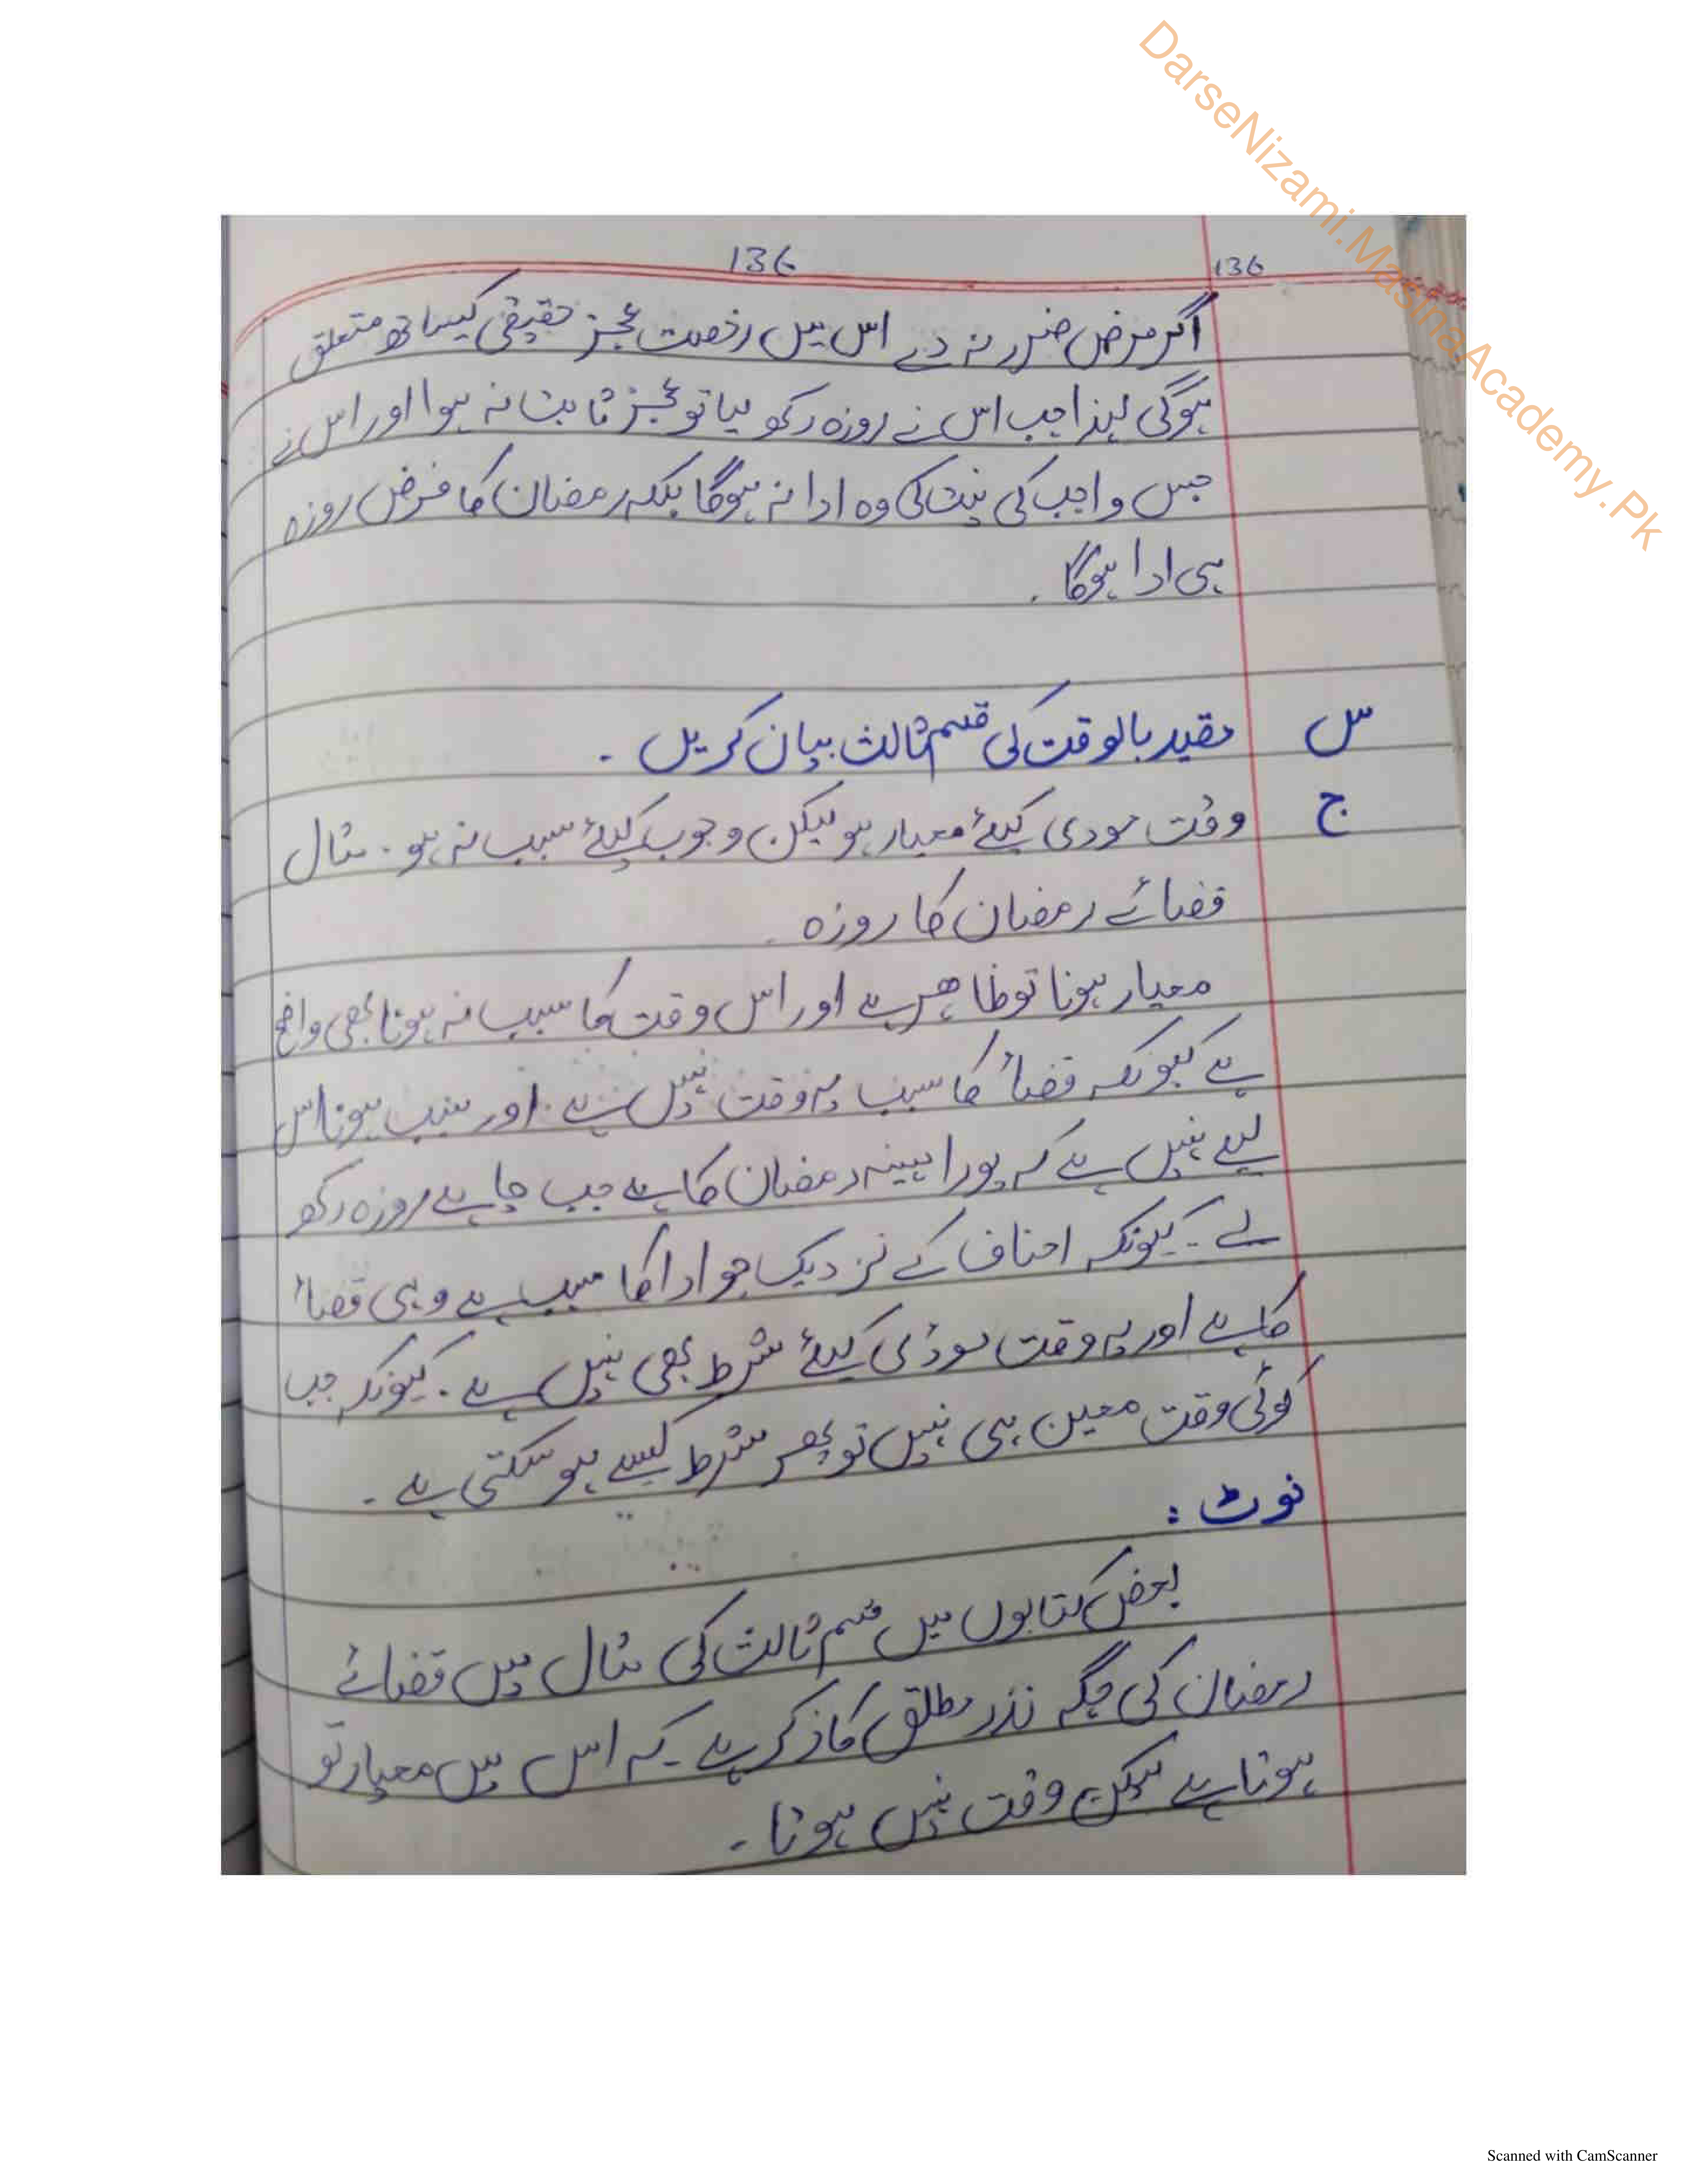 DarseNizami.MadinaAcademy.Pk
136
136
اگر مرض ضرر نہ دے اس میں رخصت عجز حقیقی کیساتھ متعلق
ہوگی لہذا جب اس نے روزہ رکھ لیا تو عجز ثابت نہ ہوا اور اس نے
جس واجب کی نیت کی وہ ادا نہ ہوگا بلکہ رمضان کا فرض روزہ
ہی ادا ہوگا۔
س مقید بالوقت کی قسم ثالث بیان کریں۔
ج وقت مودی کیلئے معیار ہو لیکن وجوب کیلئے سبب نہ ہو۔ مثال
قضائے رمضان کا روزہ
معیار ہونا تو ظاھر ہے اور اس وقت کا سبب نہ ہونا بھی واضح
ہے کیونکہ قضاء کا سبب یہ وقت نہیں ہے۔ اور سبب ہونا اس
لیے نہیں ہے کہ پورا مہینہ رمضان کا ہے جب چاہے روزہ رکھ
لے۔ کیونکہ احناف کے نزدیک جو ادا کا سبب ہے وہی قضاء
کا ہے اور یہ وقت مودٰی کیلئے شرط بھی نہیں ہے۔ کیونکہ جب
کوئی وقت معین ہی نہیں تو پھر شرط کیسے ہو سکتی ہے۔
نوٹ:
بعض کتابوں میں قسم ثالث کی مثال میں قضائے
رمضان کی جگہ نذر مطلق کا ذکر ہے۔ کہ اس میں معیار تو
ہوتا ہے لیکن وقت نہیں ہوتا۔
Scanned with CamScanner